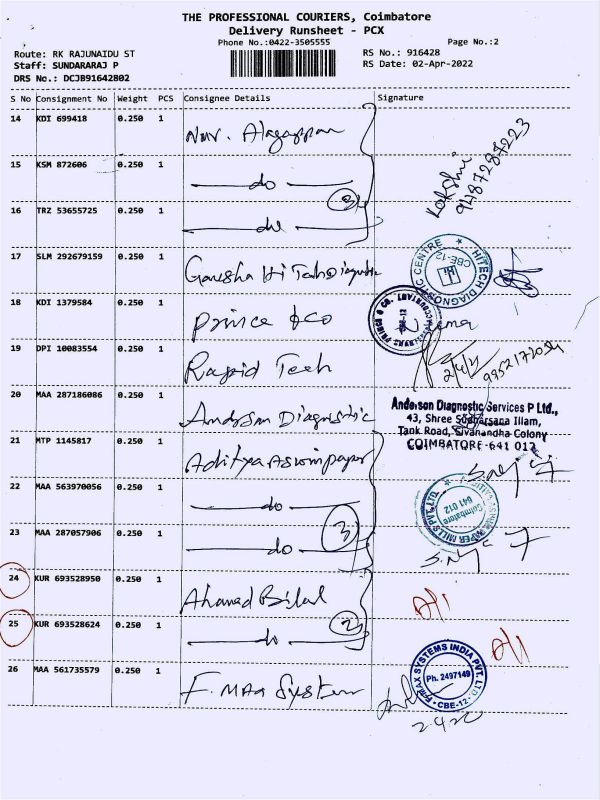 THE PROFESSIONAL COURIERS, Coimbatore
Delivery Runsheet - PCX
Phone No.:0422-3505555
Page No.:2
Route: RK RAJUNAIDU ST
RS No.: 916428
Staff: SUNDARARAJ P
RS Date: 02-Apr-2022
DRS No.: DCJB91642802
S No Consignment No Weight PCS Consignee Details Signature
14 KDI 699418 0.250 1 Alagappan
9487287223
15 KSM 872606 0.250 1 do
3
16 TRZ 53655725 0.250 1 do
17 SLM 292679159 0.250 1 Ganesha Hi
HITECH DIAGNOSTIC CENTRE
CBE-12
18 KDI 1379584 0.250 1 Prince & Co
PRINCE & CO.
CBE-12
19 DPI 10083554 0.250 1 Rapid Tech
20 MAA 287186086 0.250 1 Anderson Diagnostic
Anderson Diagnostic Services P Ltd.,
43, Shree Sudharsana Illam,
Tank Road, Sivanandha Colony
COIMBATORE-641 012
21 MTP 1145817 0.250 1 Aditya
22 MAA 563970056 0.250 1 do
PAPER MILLS PVT. LTD.
Coimbatore
641 012
3
23 MAA 287057906 0.250 1 do
24 KUR 693528950 0.250 1 Ahamed Bilal
25 KUR 693528624 0.250 1 do
2
26 MAA 561735579 0.250 1 F. Max System
SYSTEMS INDIA PVT. LTD
Ph. 2497149
CBE-12